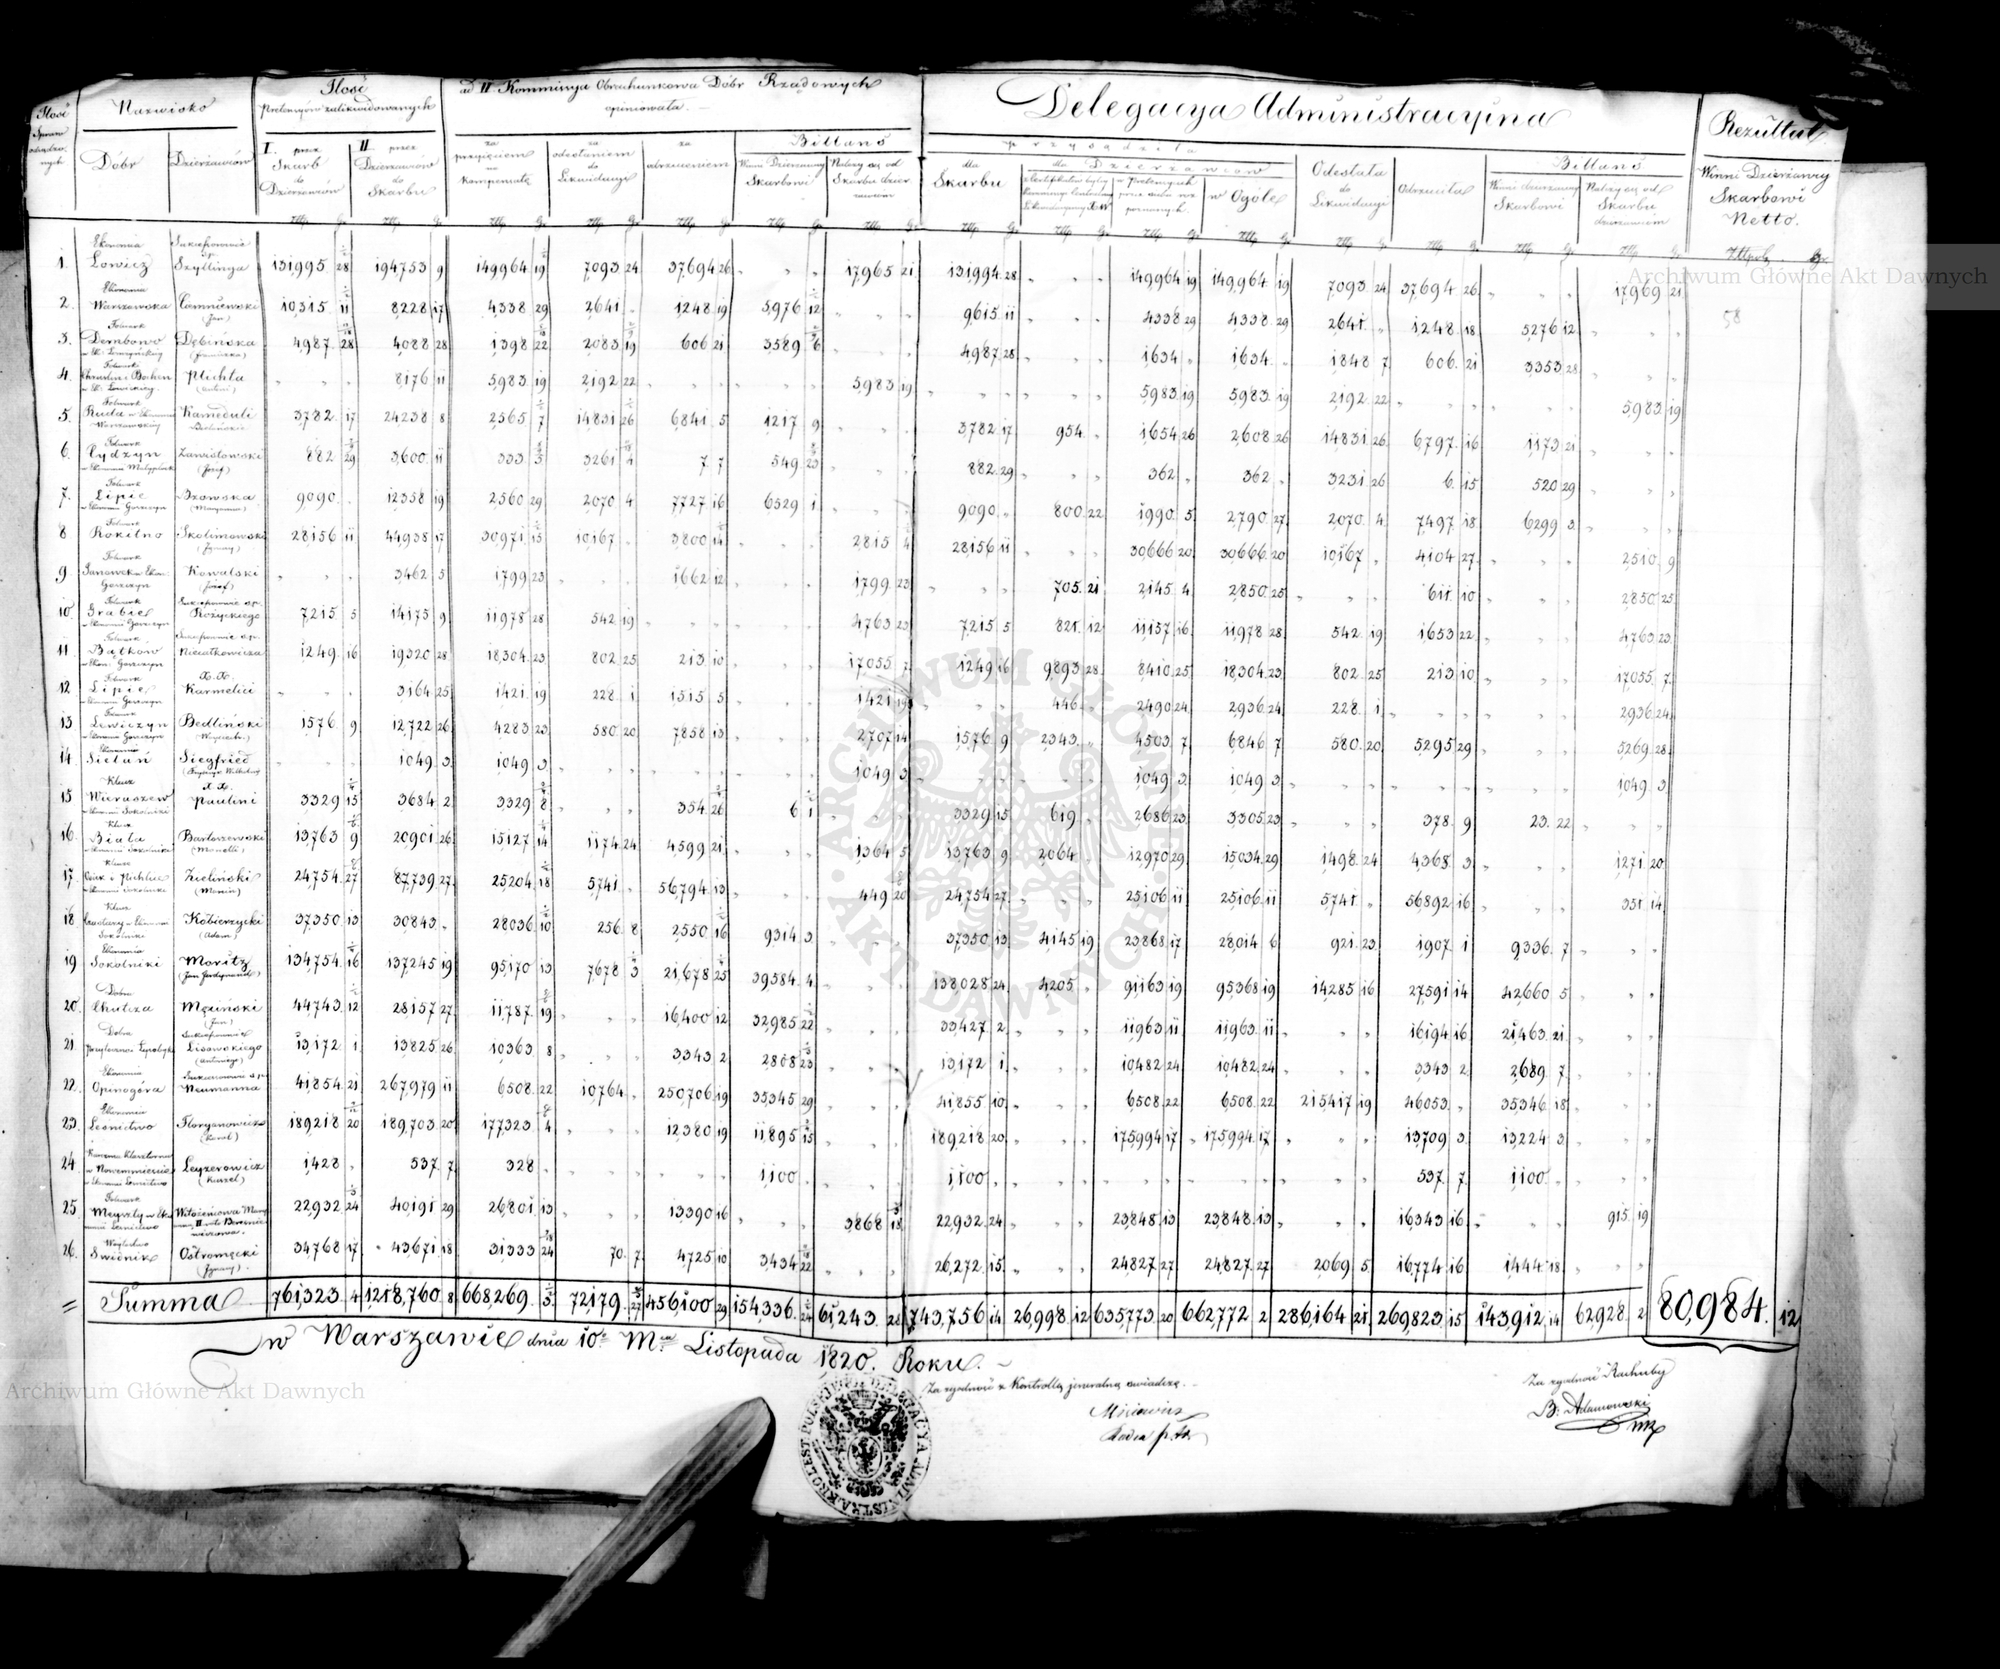 Ilość Spraw osądzonych
Nazwisko
Dóbr
Dzierżawców
Ilość
Pretensyów zalikwidowanych
I. przez Skarb do Dzierżawców
II przez Dzierżawców do Skarbu
ad II Kommissya Obrachunkowa Dóbr Rządowych
opiniowała.
za przyjęciem na kompensatę
za odesłaniem do Likwidacyi
za odrzuceniem
Billans
Winni Dzierżawcy Skarbowi
Należy się od Skarbu dzierżawcom
Delegacya Administracyina
przysądziła
dla Skarbu
dla Dzierzawców
w Ogóle
Odesłała do Likwidacyi
Odrzuciła
Billans
Winni dzierżawcy Skarbowi
Należy się od Skarbu dzierżawcom
Rezultat
Winni Dzierżawcy Skarbowi Netto.
1. Ekonomia Łowicz Sukcessorowie Szyllinga 131995 28 194753 9 149964 19 7093 24 37694 26 17965 21 131994 28 149964 19 149,964 19 7093 24 37,694 26 17969 21
2. Ekonomia Warszawska (Jan) 10315 11 8228 17 4338 29 2641 1248 19 5976 12 9615 11 4338 29 4338 29 2641 1248 18 5276 12
3. Folwark Dembowo Dębińska 4987 28 4088 28 1398 22 2083 19 606 21 3589 6 4987 28 1634 1634 1848 7 606 21 3353 28
4. Folwark Plichta 8176 11 5983 19 2192 22 5983 19 5983 19 5983 19 2192 22 5983 19
5. Folwark Ruda Kameduli 3782 17 24238 8 2565 7 14831 26 6841 5 1217 9 3782 17 954 1654 26 2608 26 14831 26 6797 16 1173 21
6. Folwark Cydzyn Zawistowski (Józef) 882 29 3600 11 333 3 3261 4 7 7 549 23 882 29 362 362 3231 26 6 15 520 29
7. Folwark Lipie Brzowska 9090 12358 19 2560 29 2070 4 7727 16 6529 1 9090 800 22 1990 5 2790 27 2070 4 7497 18 6299 3
8 Folwark Rokitno Skolimowski (Ignacy) 28156 11 44938 17 30971 15 10167 3800 14 2815 4 28156 11 30666 20 30666 20 10167 4104 27 2510 9
9 Folwark Kowalski (Józef) 3462 5 1799 23 1662 12 1799 23 705 21 2145 4 2850 25 611 10 2850 25
10. Folwark Grabie Różyckiego 7215 5 14175 9 11978 28 542 19 4763 23 7215 5 821 12 11157 16 11978 28 542 19 1653 22 4763 23
11 Folwark Bątkow 1249 16 19320 28 18304 23 802 25 213 10 17055 7 1249 16 9893 28 8410 25 18304 23 802 25 213 10 17055 7
12 Folwark Lipie X.X. Karmelici 3164 25 1421 19 228 1 1515 5 1421 19 446 2490 24 2936 24 228 1 2936 24
13 Folwark Lewiczyn Bedliński (Woyciech) 1576 9 12,722 26 4283 23 580 20 7858 13 2707 14 1576 9 2343 4503 7 6846 7 580 20 5295 29 5269 28
14 Ekonomia Sieluń Siegfried 1049 3 1049 3 1049 3 1049 3 1049 3 1049 3
15 Klucz Wieruszew X.X. Paulini 3329 15 3684 2 3329 8 354 26 6 1 3329 15 619 2686 23 3305 23 378 9 23 22
16 Klucz Biała Bartoszewski 13763 9 20901 26 15127 14 1174 24 4599 21 1364 5 13763 9 2064 12970 29 15034 29 1498 24 4368 3 1271 20
17 Klucz Zieliński (Marcin) 24,754 27 87,739 27 25204 18 5741 56794 13 449 20 24,754 27 25106 11 25106 11 5741 56892 16 351 14
18 Klucz Kobierzycki (Adam) 37,350 13 30843 28036 10 256 8 2550 16 9314 3 37350 13 4145 19 23868 17 28014 6 921 23 1907 1 9336 7
19 Ekonomia Sokolniki Moritz (Jan Ferdynand) 134,754 16 137245 19 95170 13 7678 3 21,678 25 39584 4 138,028 24 4205 91163 19 95368 19 14,285 16 27591 14 42,660 5
20 Dobra Chulcza Męciński (Jan) 44743 12 28157 27 11,787 19 16,400 12 32,985 22 33427 2 11963 11 11963 11 16194 16 21463 21
21. Dobra Lisowskiego (Antoniego) 13,172 1 13825 26 10363 8 3343 2 2808 23 13172 1 10482 24 10482 24 3343 2 2689 7
22. Ekonomia Opinogóra Neumanna 41854 21 267,979 11 6508 22 10,764 250,706 19 35345 29 41,855 10 6508 22 6508 22 215417 19 46053 35346 18
23. Ekonomia Leśnictwo Floryanowicz (Karol) 189218 20 189,703 20 177323 4 12380 19 11,895 15 189218 20 175994 17 175994 17 13709 3 13,224 3
24 Leyzerowicz 1428 537 7 328 1100 1,100 537 7 1100
25 Folwark 22,932 24 40191 29 26801 13 13390 16 3868 18 22932 24 23,848 13 23848 13 16343 16 915 19
26. Ostromęcki (Ignacy) 34768 17 43671 18 31333 24 70 7 4725 10 3434 22 26,272 15 24827 27 24,827 27 2069 5 16774 16 1444 18
Summa 761,323 4 1,218,760 8 668,269 3 72179 27 456100 29 154,336 24 61,243 28 743,756 14 26,998 12 635,773 20 662,772 2 286,164 21 269,823 15 143,912 14 62,928 2 80,984 12
w Warszawie dnia 10º Mca Listopada 1820. Roku.
Za zgodność z Kontrollą jeneralną świadczę.
Za zgodność Rachuby
B. Adamowski
Archiwum Główne Akt Dawnych
Archiwum Główne Akt Dawnych
ARCHIWUM GŁÓWNE AKT DAWNYCH